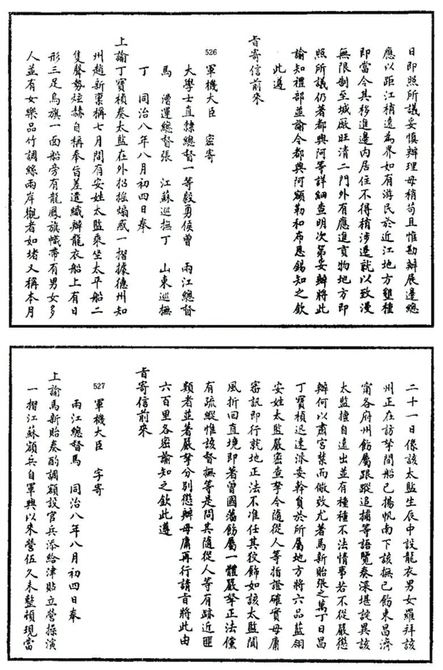 日即照所議妥慎辦理毋稍苟且惟勘辦展邊總
應以距江稍遠為界如有游民於近江地方墾種
即當令其移進邊內居住不得稍涉遷就以致漫
無限制至城廠旺清二門外有應進貢物地方即
照所議仍著都興阿等詳細查明次第妥辦將此
諭知禮部並諭令都興阿額勒和布恩錫知之欽
此遵
旨寄信前來
526 軍機大臣 密寄
大學士直隸總督一等毅勇侯曾 兩江總督
馬 漕運總督張 江蘇巡撫丁 山東巡撫
丁 同治八年八月初四日奉
上諭丁寶楨奏太監在外招搖煽惑一摺據德州知
州趙新稟稱七月間有安姓太監乘坐太平船二
隻聲勢炫赫自稱奉旨差遣織辦龍衣船上有日
形三足烏旗一面船旁有龍鳳旗幟帶有男女多
人並有女樂品竹調絲兩岸觀者如堵又稱本月
二十一日係該太監生辰中設龍衣男女羅拜該
州正在訪拏間船已揚帆南下該撫已飭東昌濟
甯各府州飭屬跟蹤追捕等語覽奏深堪詫異該
太監擅自遠出並有種種不法情事若不從嚴懲
辦何以肅宮禁而儆效尤著馬新貽張之萬丁日昌
丁寶楨迅速派委幹員於所屬地方將六品藍翎
安姓太監嚴密查拏令隨從人等指證確實毋庸
審訊即行就地正法不准任其狡飾如該太監聞
風折回直境即著曾國藩飭屬一體嚴拏正法儻
有疏縱惟該督撫等是問其隨從人等有跡近匪
類者並著嚴拏分別懲辦毋庸再行請旨將此由
六百里各密諭知之欽此遵
旨寄信前來
527 軍機大臣 字寄
兩江總督馬 同治八年八月初四日奉
上諭馬新貽奏酌調額設官兵添給津貼立營操演
一摺江蘇額兵自軍興以來營伍久未整頓現當